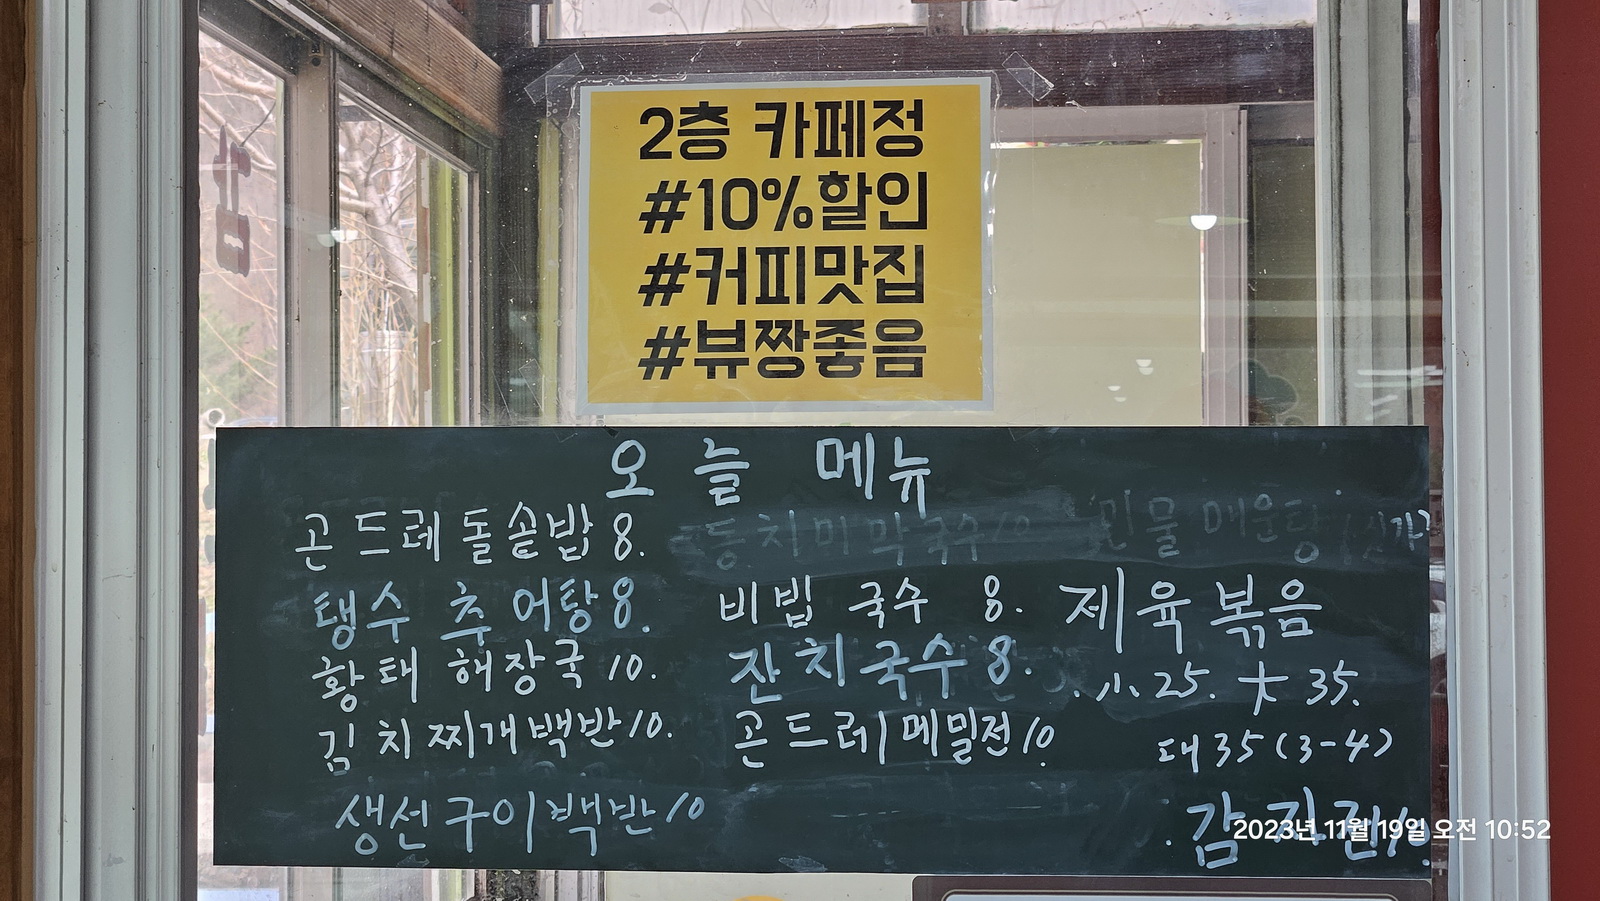 2층 카페정
#10%할인
#커피맛집
#뷰짱좋음
오늘 메뉴
곤드레돌솥밥 8.
탱수 추어탕 8.
황태 해장국 10.
김치찌개백반 10.
생선구이백반 10
동치미막국수 10
비빕 국수 8.
잔치국수 8.
곤드레메밀전 10
민물매운탕
제육볶음
小 25. 大 35.
대35(3-4)
감자전
2023년 11월 19일 오전 10:52